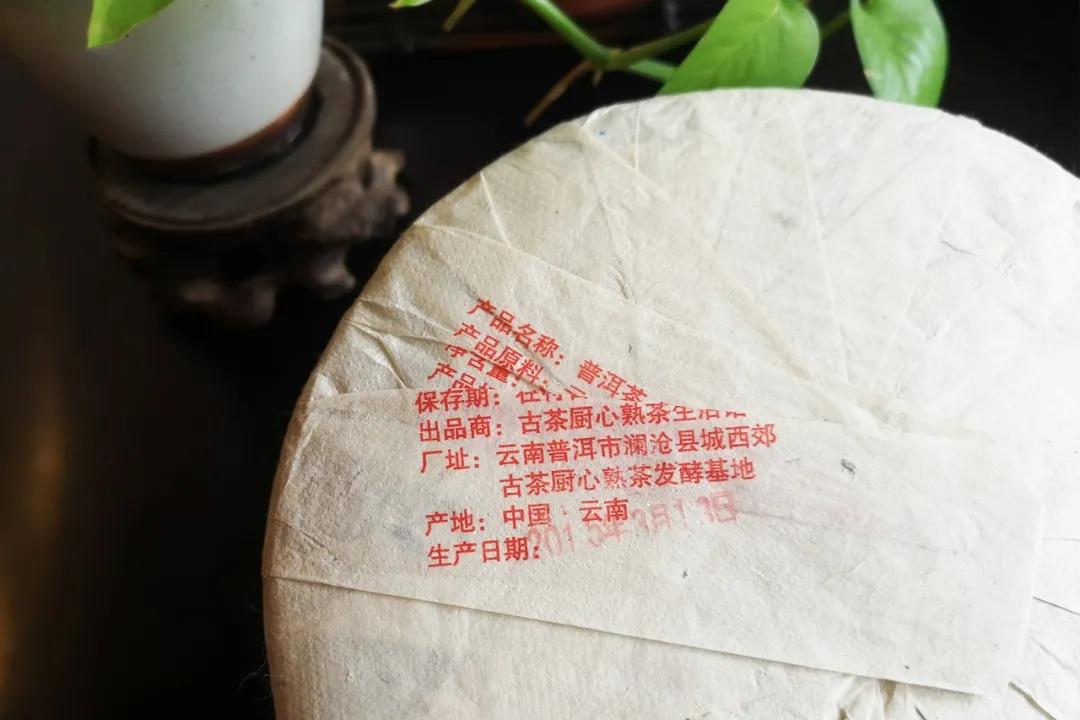 产品名称：普洱茶
产品原料：
净含量：
产品
保存期：在
出品商：古茶厨心熟茶生活馆
厂址：云南普洱市澜沧县城西郊
古茶厨心熟茶发酵基地
产地：中国·云南
生产日期：